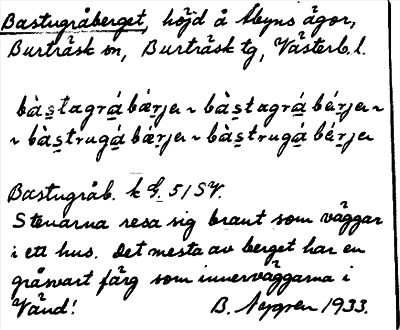 Bastugråberget, höjd å Åbyns ägor,
Burträsk sn, Burträsk tg, Västerb. l.
bàstagrá bǽrjer ~ bàstagrá bérjer ~
~ bàstrugá bǽrjer ~ bàstrugá bérjer
Bastugråb. k G. 51 SV.
Stenarna resa sig brant som väggar
i ett hus. Det mesta av berget har en
gråsvart färg som innerväggarna i
B. Nygren 1933.